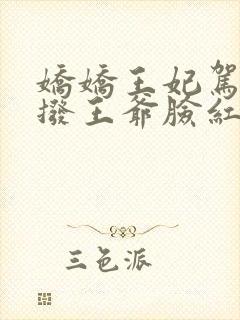 嬌嬌王妃駕
撥王爺臉紅
三色派